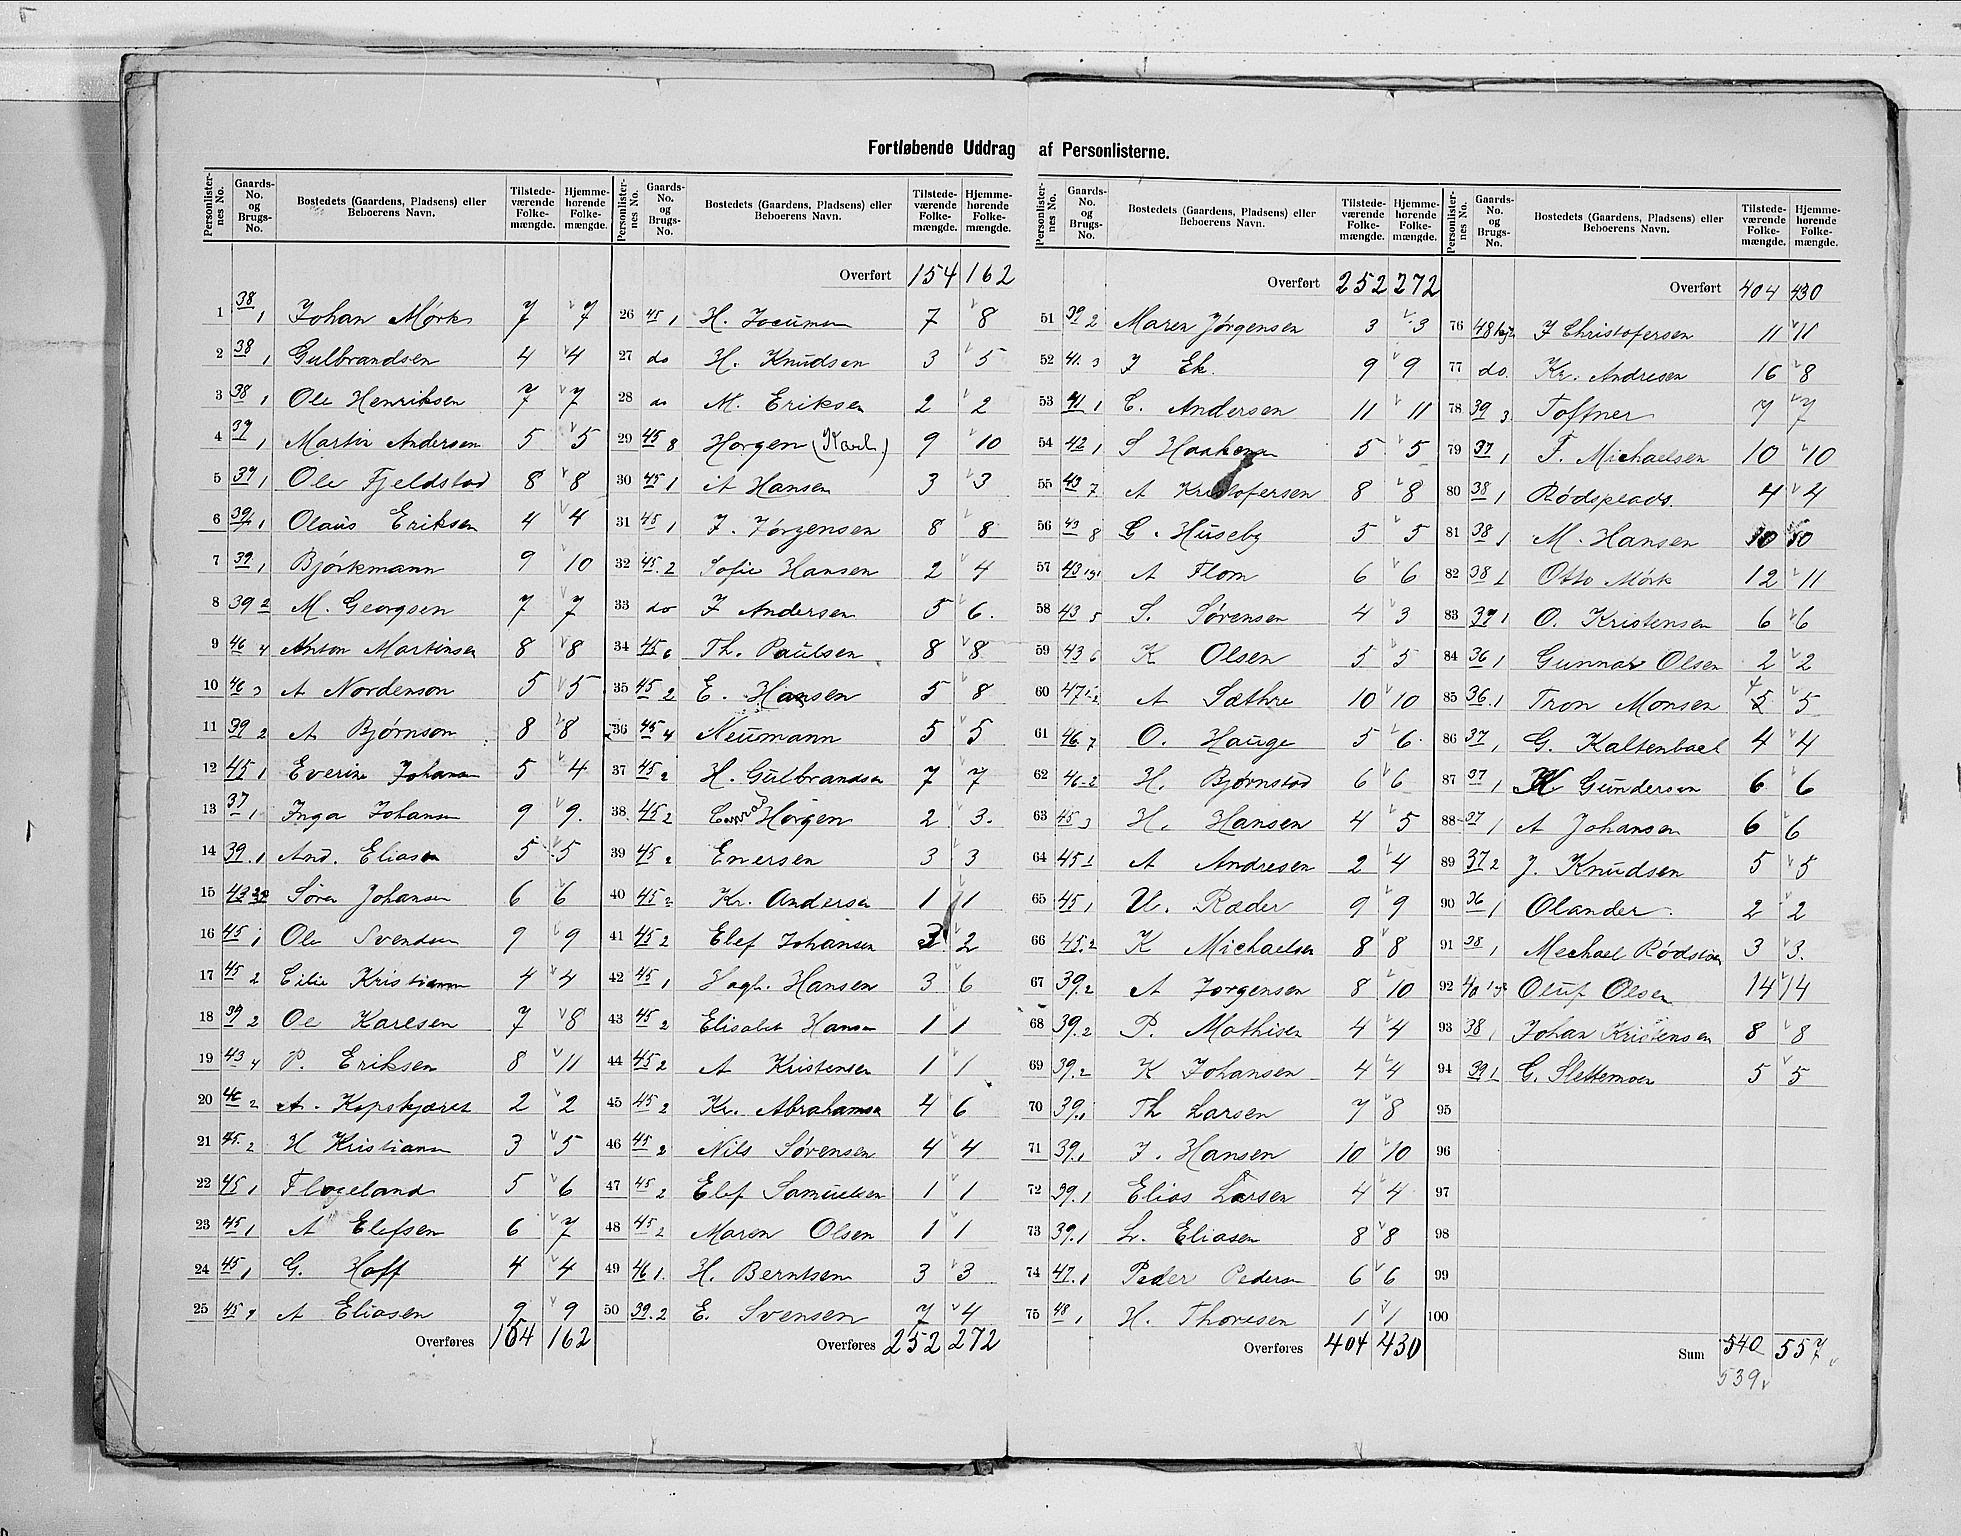 Fortløbende Uddrag af Personlisterne.
Personlister-nes No. Gaards-No. og Brugs-No. Bostedets (Gaardens, Pladsens) eller Beboerens Navn. Tilstede-værende Folke-mængde. Hjemme-hørende Folke-mængde.
1 38,1 Johan Mørk 7 7
2 38,1 Gulbrandsen 4 4
3 38,1 Ole Henriksen 7 7
4 37,1 Martin Andersen 5 5
5 37,1 Ole Fjeldstad 8 8
6 39,1 Olaus Eriksen 4 4
7 39,1 Bjørkmann 9 10
8 39,2 M. Georgsen 7 7
9 46,4 Anton Martinsen 8 8
10 46,3 A Nordenson 5 5
11 39,2 A Bjørnson 8 8
12 45,1 Everine Johansen 5 4
13 37,1 Inga Johansen 9 9.
14 39,1 And. Eliasen 5 5
15 43 Søren Johansen 6 6
16 45,1 Ole Svendsen 9 9
17 45,2 Cilie Kristiansen 4 4
18 39,2 Ol Karlsen 7 8
19 43,4 P. Eriksen 8 11
20 46,2 A. Kopskjæret 2 2
21 45,2 H Kristiansen 3 5
22 45,1 Flogeland 5 6
23 45,1 A Elefsen 6 7
24 45,1 G. Hoff 4 4
25 45,7 A Eliasen 9 9
Overføres 154 162
Personlister-nes No. Gaards-No. og Brugs-No. Bostedets (Gaardens, Pladsens) eller Beboerens Navn. Tilstede-værende Folke-mængde. Hjemme-hørende Folke-mængde.
Overført 154 162
26 45,1 H. 7 8
27 do H. Knudsen 3 5
28 do M. Eriksen 2 2
29 45,8 Horgen (Karl.) 9 10
30 45,1 A Hansen 3 3
31 45,1 J. Jørgensen 8 8
32 45,2 Sofie Hansen 2 4
33 do J Andersen 5 6.
34 45,6 Th. Paulsen 8 8
35 45,2 E. Hansen 5 8
36 45,4 Neumann 5 5
37 45,2 H. Gulbrandsen 7 7
38 45,2 Horgen 2 3.
39 45,2 Eversen 3 3
40 45,2 Kr. Andersen 1 1
41 45,2 Elef Johansen 3 2
42 45,1 Hagb. Hansen 3 6
43 45,2 Elisabet Hansen 1 1
44 45,2 A Kristensen 1 1
45 45,2 Kr. Abrahamsen 4 6
46 45,2 Nils Sørensen 4 4
47 45,2 Elef Samuelsen 1 1
48 45,2 Maren Olsen 1 1
49 46,1. H. Berntsen 3 3
50 39,2 E. Svensen 7 4
Overføres 252 272
Personlister-nes No. Gaards-No. og Brugs-No. Bostedets (Gaardens, Pladsens) eller Beboerens Navn. Tilstede-værende Folke-mængde. Hjemme-hørende Folke-mængde.
Overført 252 272
51 39,2 Maren Jørgensen 3 3
52 41,3 J Ek. 9 9
53 41,1 C. Andersen 11 11
54 42,1 S Haakensen 5 5
55 43,7 A Kristofersen 8 8
56 43,8 G. Huseby 5 5
57 43 A Flom 6 6
58 43,5 S. Sørensen 4 3
59 43,6 K Olsen 5 5
60 47 A Sæthre 10 10
61 46,7 O. Hauge 5 6
62 46,2 H. Bjørnstad 6 6
63 45,3 H. Hansen 4 5
64 45,1 A Andresen 2 4
65 45,1 U. Ræder 9 9
66 45,2 K Michaelsen 8 8
67 39,2 A Jørgensen 8 10
68 39,2 P. Mathisen 4 4
69 39,2 K Johansen 4 4
70 39,1 Th Larsen 7 8
71 39,1 J. Hansen 10 10
72 39,1 Elias Larsen 4 4
73 39,1 L. Eliasen 8 8
74 47,1 Peder Pedersen 6 6
75 48,1 H. Thoresen 1 1
Overføres 404 430
Personlister-nes No. Gaards-No. og Brugs-No. Bostedets (Gaardens, Pladsens) eller Beboerens Navn. Tilstede-værende Folke-mængde. Hjemme-hørende Folke-mængde.
Overført 404 430
76 48 J Christofersen 11 11
77 do. Kr. Andresen 16 8
78 39,3 Toftner 7 7
79 37,1 F. Michaelsen 10 10
80 38,1 Rødsplads. 4 4
81 38,1 M. Hansen 10 10
82 38,1 Otto Mørk 12 11
83 37,1 O. Kristensen 6 6
84 36,1 Gunnar Olsen 2 2
85 36,1 Tron Monsen 4 5
86 37,1 G. Kaltenbael 4 4
87 37,1 K Gundersen 6 6
88 37,1 A Johansen 6 6
89 37,2 J. Knudsen 5 5
90 36,1 Olander 2 2
91 38,1 Mechael 3 3.
92 40 Oluf Olsen 14 14
93 38,1 Johan Kristensen 8 8
94 39,1 G. Slettemoen 5 5
95
96
97
98
99
100
Sum 540 557
539